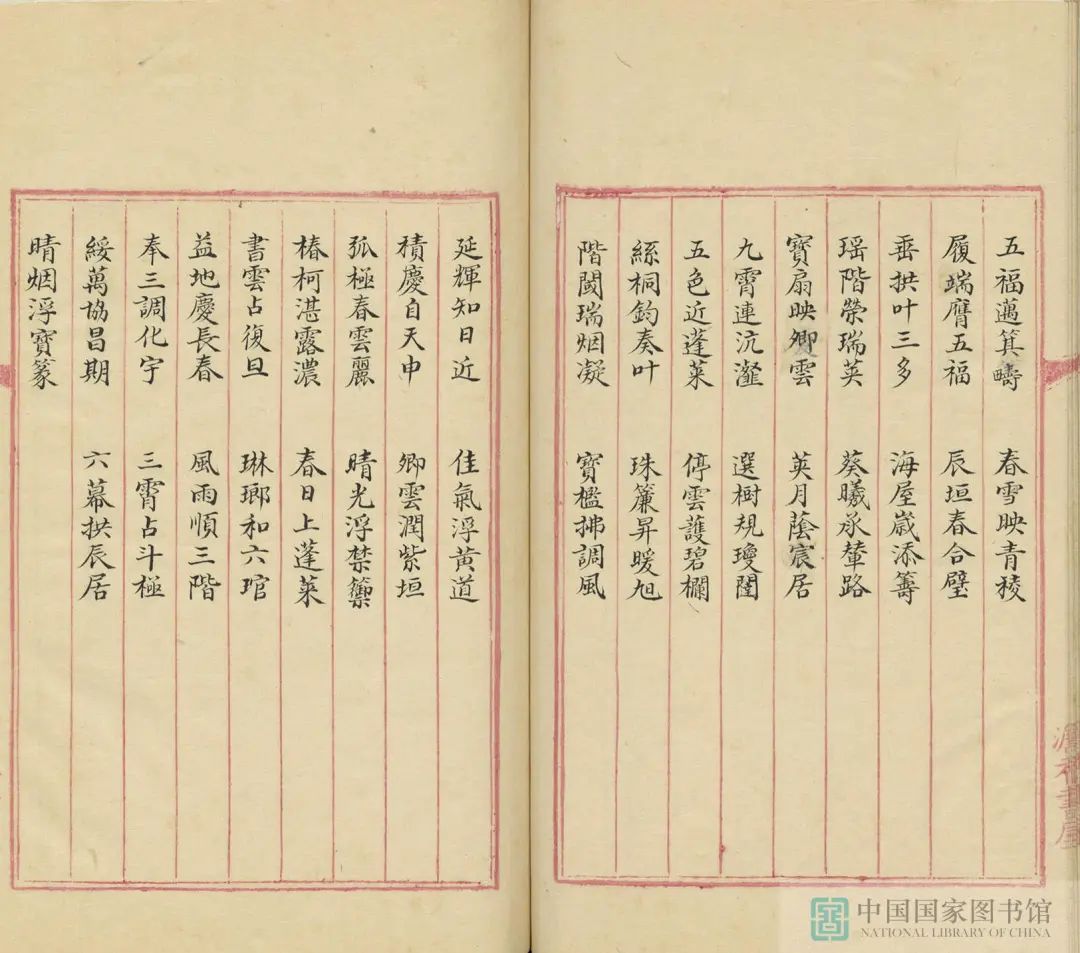 五福邁箕疇 春雪映青稜
履端膺五福 辰垣春合璧
垂拱叶三多 海屋歲添籌
瑶階榮瑞英 葵曦承輦路
寶扇映卿雲 英月蔭宸居
九霄連沆瀣 選樹規瓊閨
五色近蓬萊 停雲護碧欄
絲桐鈞奏叶 珠簾昇暖旭
階閩瑞烟凝 寶檻拂調風
延輝知日近 佳氣浮黃道
積慶自天申 卿雲潤紫垣
弧極春雲麗 晴光浮禁籞
椿柯湛露濃 春日上蓬萊
書雲占復旦 琳瑯和六琯
益地慶長春 風雨順三階
奉三調化宇 三霄占斗極
綏萬協昌期 六幕拱辰居
晴烟浮寶篆
書屋
中国国家图书馆
NATIONAL LIBRARY OF CHINA